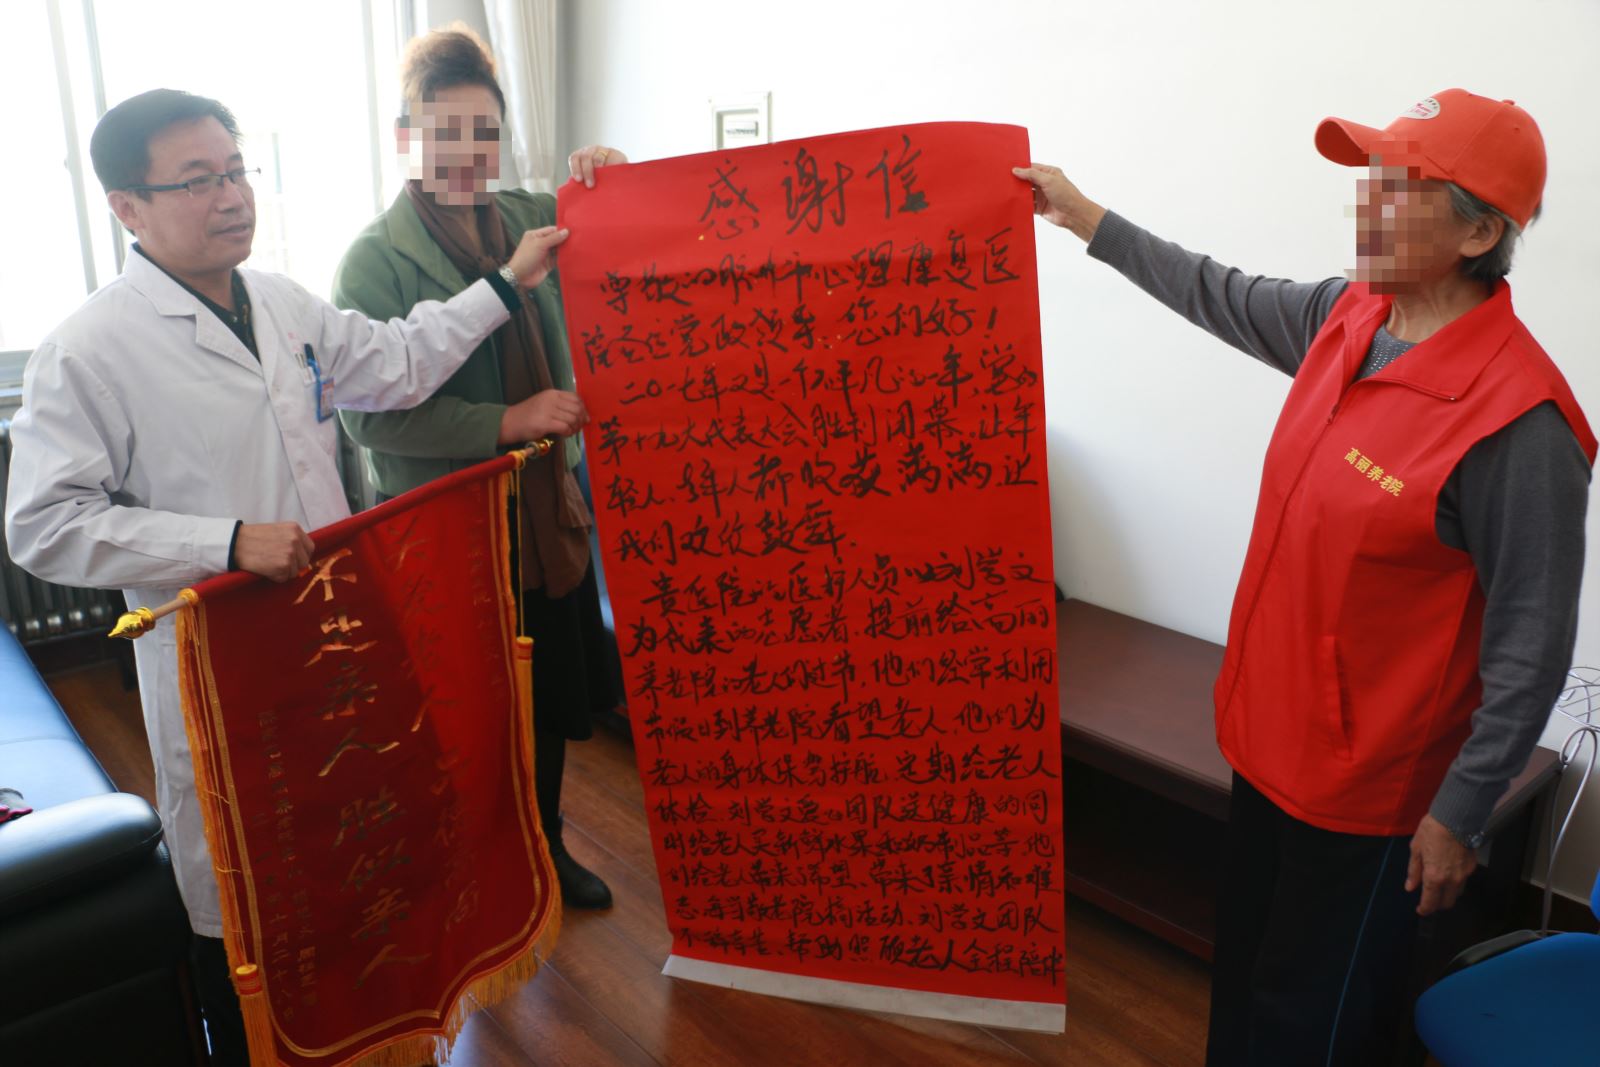 感谢信
尊敬的 市心理康复医
院各位党政领导:您们好!
二〇一七年又是一个不平凡的一年,党的
第十九大代表大会胜利闭幕,让年
轻人、老年人都收获满满,让
我们欢欣鼓舞.
贵医院的医护人员以刘学文
为代表的志愿者,提前给高丽
养老院的老人们过节,他们经常利用
节假日到养老院看望老人,他们为
老人的身体保驾护航,定期给老人
体检,刘学文爱心团队送健康的同
时给老人买新鲜水果和奶制品等,他
们给老人带来了希望、带来了亲情和
每当敬老院搞活动,刘学文团队
不辞辛苦、帮助照顾老人全程陪伴
不是亲人胜似亲人
高丽养老院